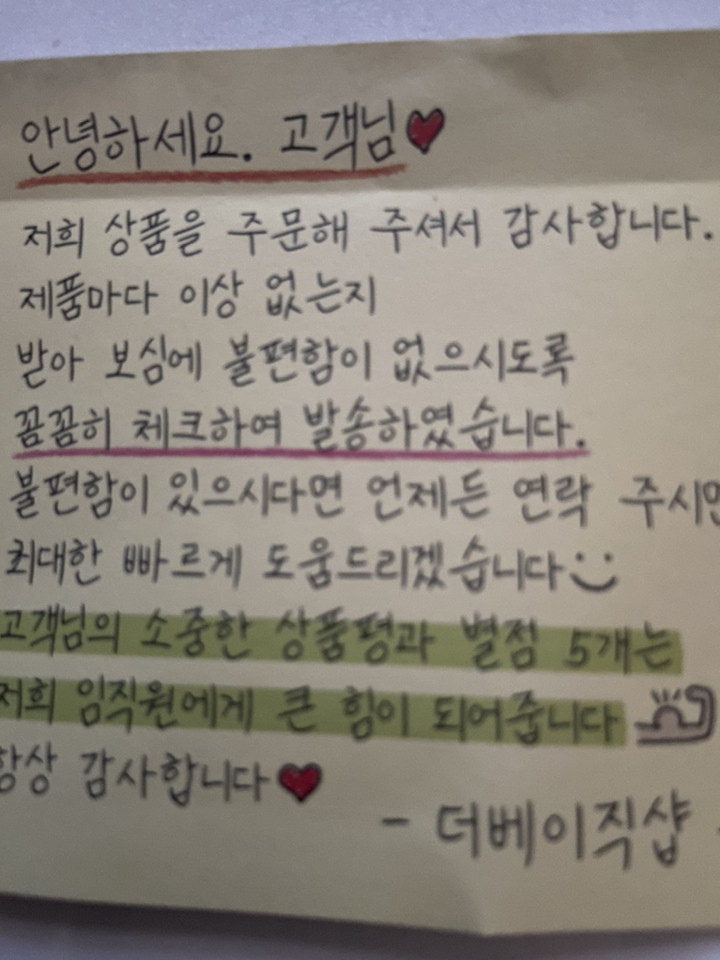 안녕하세요. 고객님♥
저희 상품을 주문해 주셔서 감사합니다.
제품마다 이상 없는지
받아 보심에 불편함이 없으시도록
꼼꼼히 체크하여 발송하였습니다.
불편함이 있으시다면 언제든 연락 주시면
최대한 빠르게 도움드리겠습니다
고객님의 소중한 상품평과 별점 5개는
저희 임직원에게 큰 힘이 되어줍니다
항상 감사합니다♥
- 더베이직샵